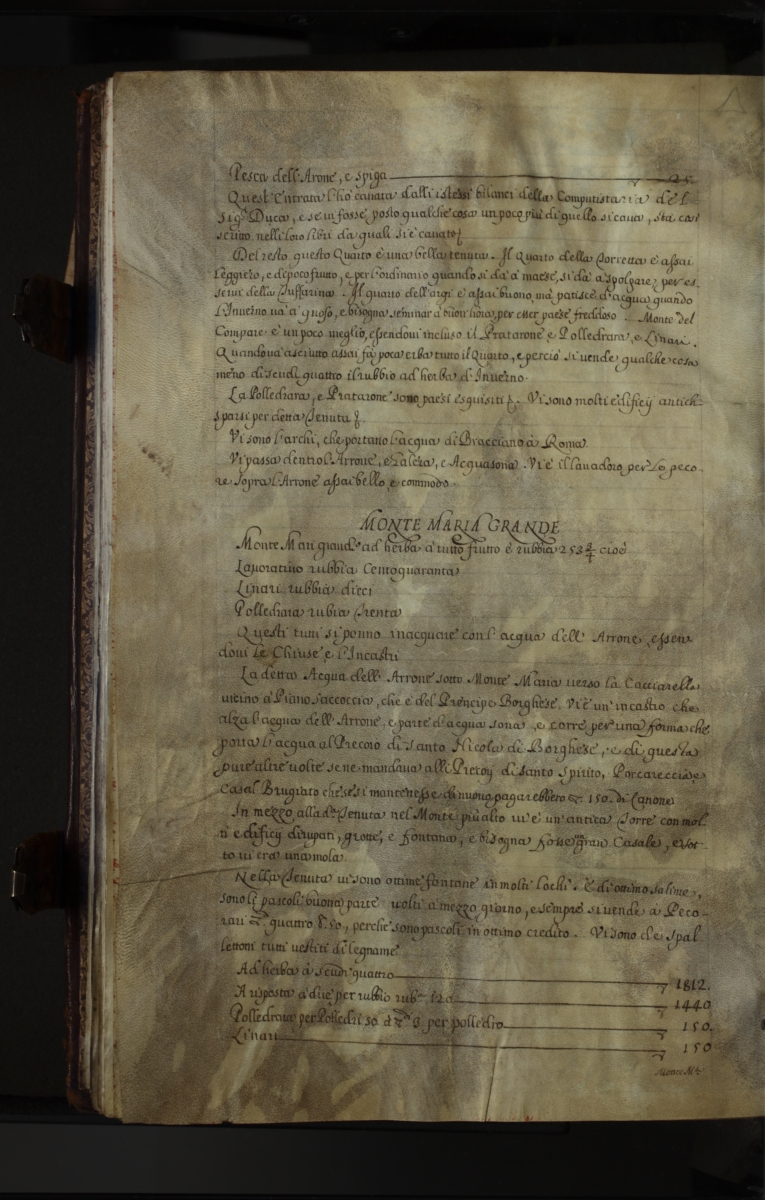 Pesca dell'Arone, e spiga 25.
Quest'Entrata l'hò cavata dalli istessi bilanci della Computistaria del
Sig.r Duca, e se in fosse posto qualche cosa un poco più di quello si cava, sta così
scritto nelli loro libri da quali si è cavato
Del resto questo Quarto è una bella tenuta. Il Quarto della Torretta è assai
Leggiero, e di poco frutto, e per l'ordinario quando si dà à maese, si dà à spolgare per es-
servi della Zuffarina. Il quarto dell'argi è assai buono, mà patisce d'acqua quando
l'Inverno và à guoso, e bisogna seminar à buon'hora, per esser paese freddoso. Monte del
Compare è un poco meglio, essendovi incluso il Pratarone è Polledrara, e Linari.
Quando và asciutto assai fà poca erba tutto il Quarto, e perciò si vende qualche cosa
meno di scudi quattro il rubbio ad herba d'Inverno.
La Polledrara, e Pratarone sono paesi esquisiti. Vi sono molti edificij antich-
sparsi per detta Tenuta
Vi sono l'archi, che portano l'acqua di Bracciano à Roma
Vi passa dentro l'Arrone, e Galera, e Acquasona. Vi è il lavadoro per le peco-
re sopra l'Arrone assai bello, e commodo.
MONTE MARIA GRANDE
Monte Mari grande ad herba à tutto frutto è rubbia 253 3/4 cioè
Lavorativo rubbia Centoquaranta
Linari rubbia dieci
Polledrara rubia Trenta
Questi tutti si ponno inacquare con l'acqua dell'Arrone, essen
dovi le Chiuse, e l'Incastri
La detta Acqua dell'Arrone sotto Monte Maria verso la Cacciarella
vicino à Piano saccoccia, che è del Prencipe Borghese. Vi è un'incastro che
alza l'acqua dell'Arrone, e parte d'acqua sona, e corre per una forma che
porta l'acqua al Precoio di Santo Nicola di Borghese, e di questa
pure altre volte se ne mandava alli Precoij di Santo Spirito, Porcareccia e
Casal Brugiato che se si mantenesse di nuovo pagarebbero 150. di Canone
In mezzo alla d.a Tenuta nel Monte più alto vi è un'antica Torre con mol-
ti edificij dirupati, grotte, e fontana, e bisogna fosse gran Casale, e sot-
to vi era una mola
Nella Tenuta vi sono ottime fontane in molti lochi. è di ottimo salime,
sono li pascoli buona parte volti à mezzo giorno, e sempre si vende à Peco-
rari quattro 50, perche sono pascoli in ottimo credito. Vi sono de Spal
lettoni tutti vestiti di legname
Ad herba à scudi quattro 1812.
A risposta à due per rubbio rub. 120 1440
Polledrara per Polledri 50 à 3 per polledro 150.
Linari 150
Monte M.a